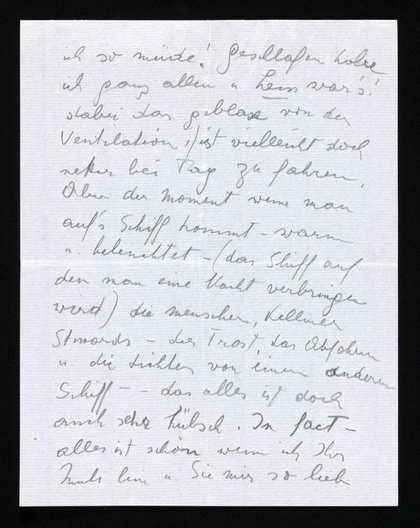 ich so müde! Geschlafen habe
ich ganz allein u heiss war's!
dabei das geblase von der
Ventilation, ist vielleicht doch
netter bei Tag zu fahren.
Aber der Moment wenn man
auf's Schiff kommt - warm
u. beleuchtet - (das Schiff auf
dem man eine Nacht verbringen
wird) die menschen, Kellner
Stuards - der Trost, das Abfahren
u die Lichter von einem anderen
Schiff - - das alles ist doch
auch sehr hübsch. In fact -
alles ist schön wenn ich Ihr
bin u. Sie mir so lieb